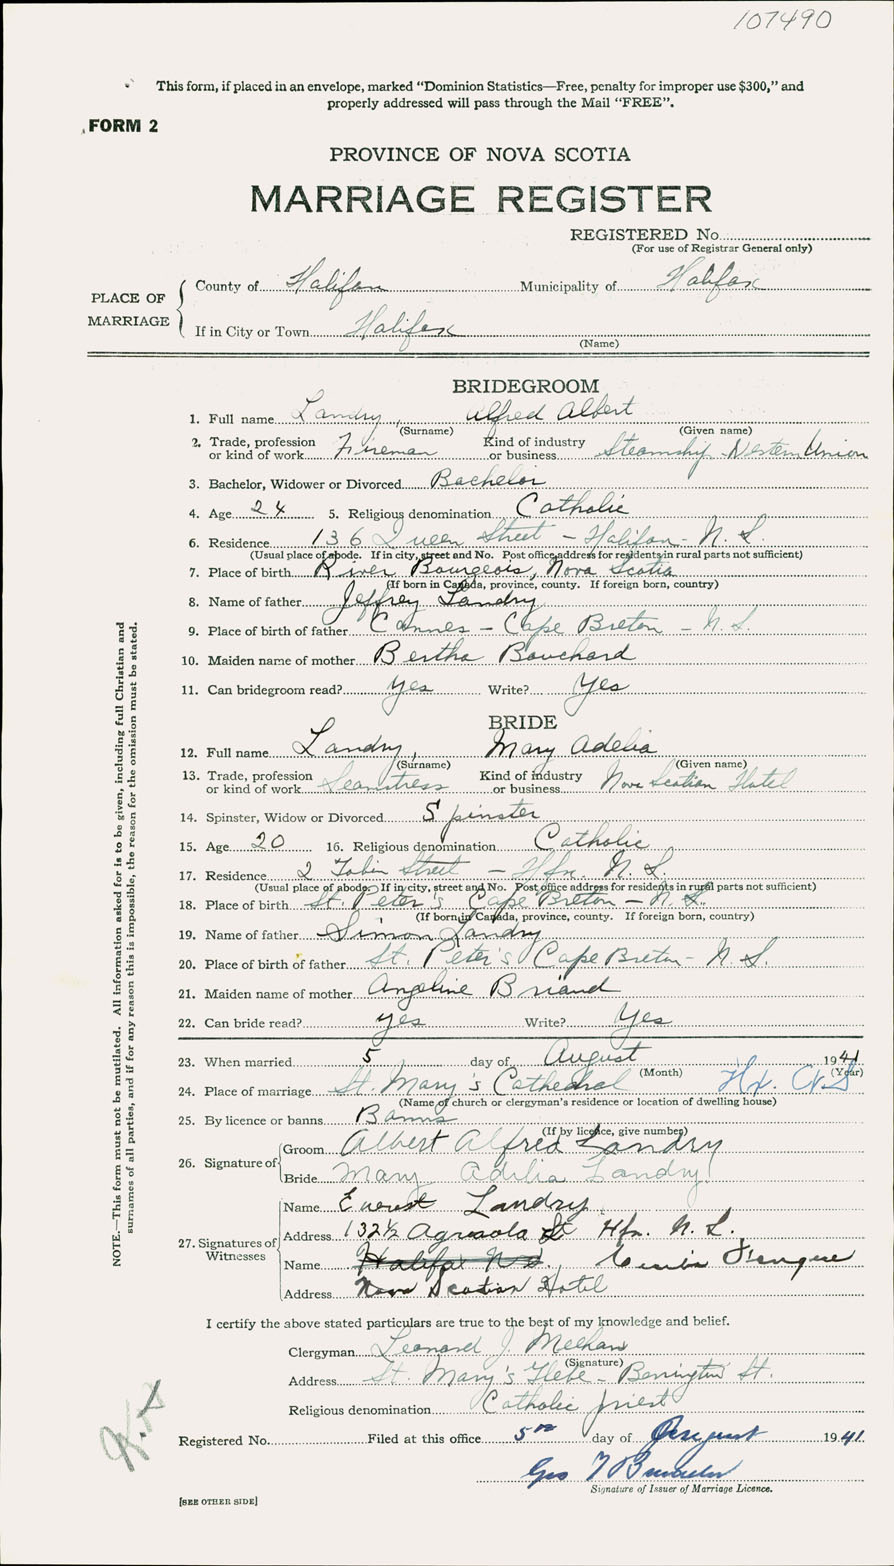 107490
This form, if placed in an envelope, marked “Dominion Statistics—Free, penalty for improper use $300,” and
properly addressed will pass through the Mail “FREE”.
FORM 2
PROVINCE OF NOVA SCOTIA
MARRIAGE REGISTER
REGISTERED No.
(For use of Registrar General only)
PLACE OF MARRIAGE
County of Halifax Municipality of Halifax
If in City or Town Halifax
(Name)
BRIDEGROOM
1. Full name Landry, Alfred Albert
(Surname) (Given name)
2. Trade, profession or kind of work Fireman Kind of industry or business Steamship Western Union
3. Bachelor, Widower or Divorced Bachelor
4. Age 24 5. Religious denomination Catholic
6. Residence 136 Queen Street - Halifax - N.S.
(Usual place of abode. If in city, street and No. Post office address for residents in rural parts not sufficient)
7. Place of birth River Bourgeois, Nova Scotia
(If born in Canada, province, county. If foreign born, country)
8. Name of father Jeffrey Landry
9. Place of birth of father Cannes - Cape Breton - N.S.
10. Maiden name of mother Bertha Bouchard
11. Can bridegroom read? yes Write? Yes
BRIDE
12. Full name Landry, Mary Adelia
(Surname) (Given name)
13. Trade, profession or kind of work Seamstress Kind of industry or business Nova Scotian Hotel
14. Spinster, Widow or Divorced Spinster
15. Age 20 16. Religious denomination Catholic
17. Residence 2 Tobin Street - Hfx. N.S.
(Usual place of abode. If in city, street and No. Post office address for residents in rural parts not sufficient)
18. Place of birth St. Peter's Cape Breton - N.S.
(If born in Canada, province, county. If foreign born, country)
19. Name of father Simon Landry
20. Place of birth of father St. Peter's Cape Breton - N.S.
21. Maiden name of mother Angeline Briand
22. Can bride read? yes Write? Yes
23. When married 5 day of August 1941
(Month) (Year)
24. Place of marriage St. Mary's Cathedral Hx. N.S
(Name of church or clergyman's residence or location of dwelling house)
25. By licence or banns Banns
(If by licence, give number)
26. Signature of
Groom Albert Alfred Landry
Bride Mary Adelia Landry
27. Signatures of Witnesses
Name Ernest Landry
Address 132½ Agricola St Hfx. N.S.
Name Halifax N.S.
Address Nova Scotian Hotel
I certify the above stated particulars are true to the best of my knowledge and belief.
Clergyman Leonard J. Meehan
(Signature)
Address St. Mary's Glebe - Barrington St.
Religious denomination Catholic priest
Registered No. Filed at this office 5th day of August 1941.
Geo
Signature of Issuer of Marriage Licence.
[SEE OTHER SIDE]
NOTE.—This form must not be mutilated. All information asked for is to be given, including full Christian and
surnames of all parties, and if for any reason this is impossible, the reason for the omission must be stated.